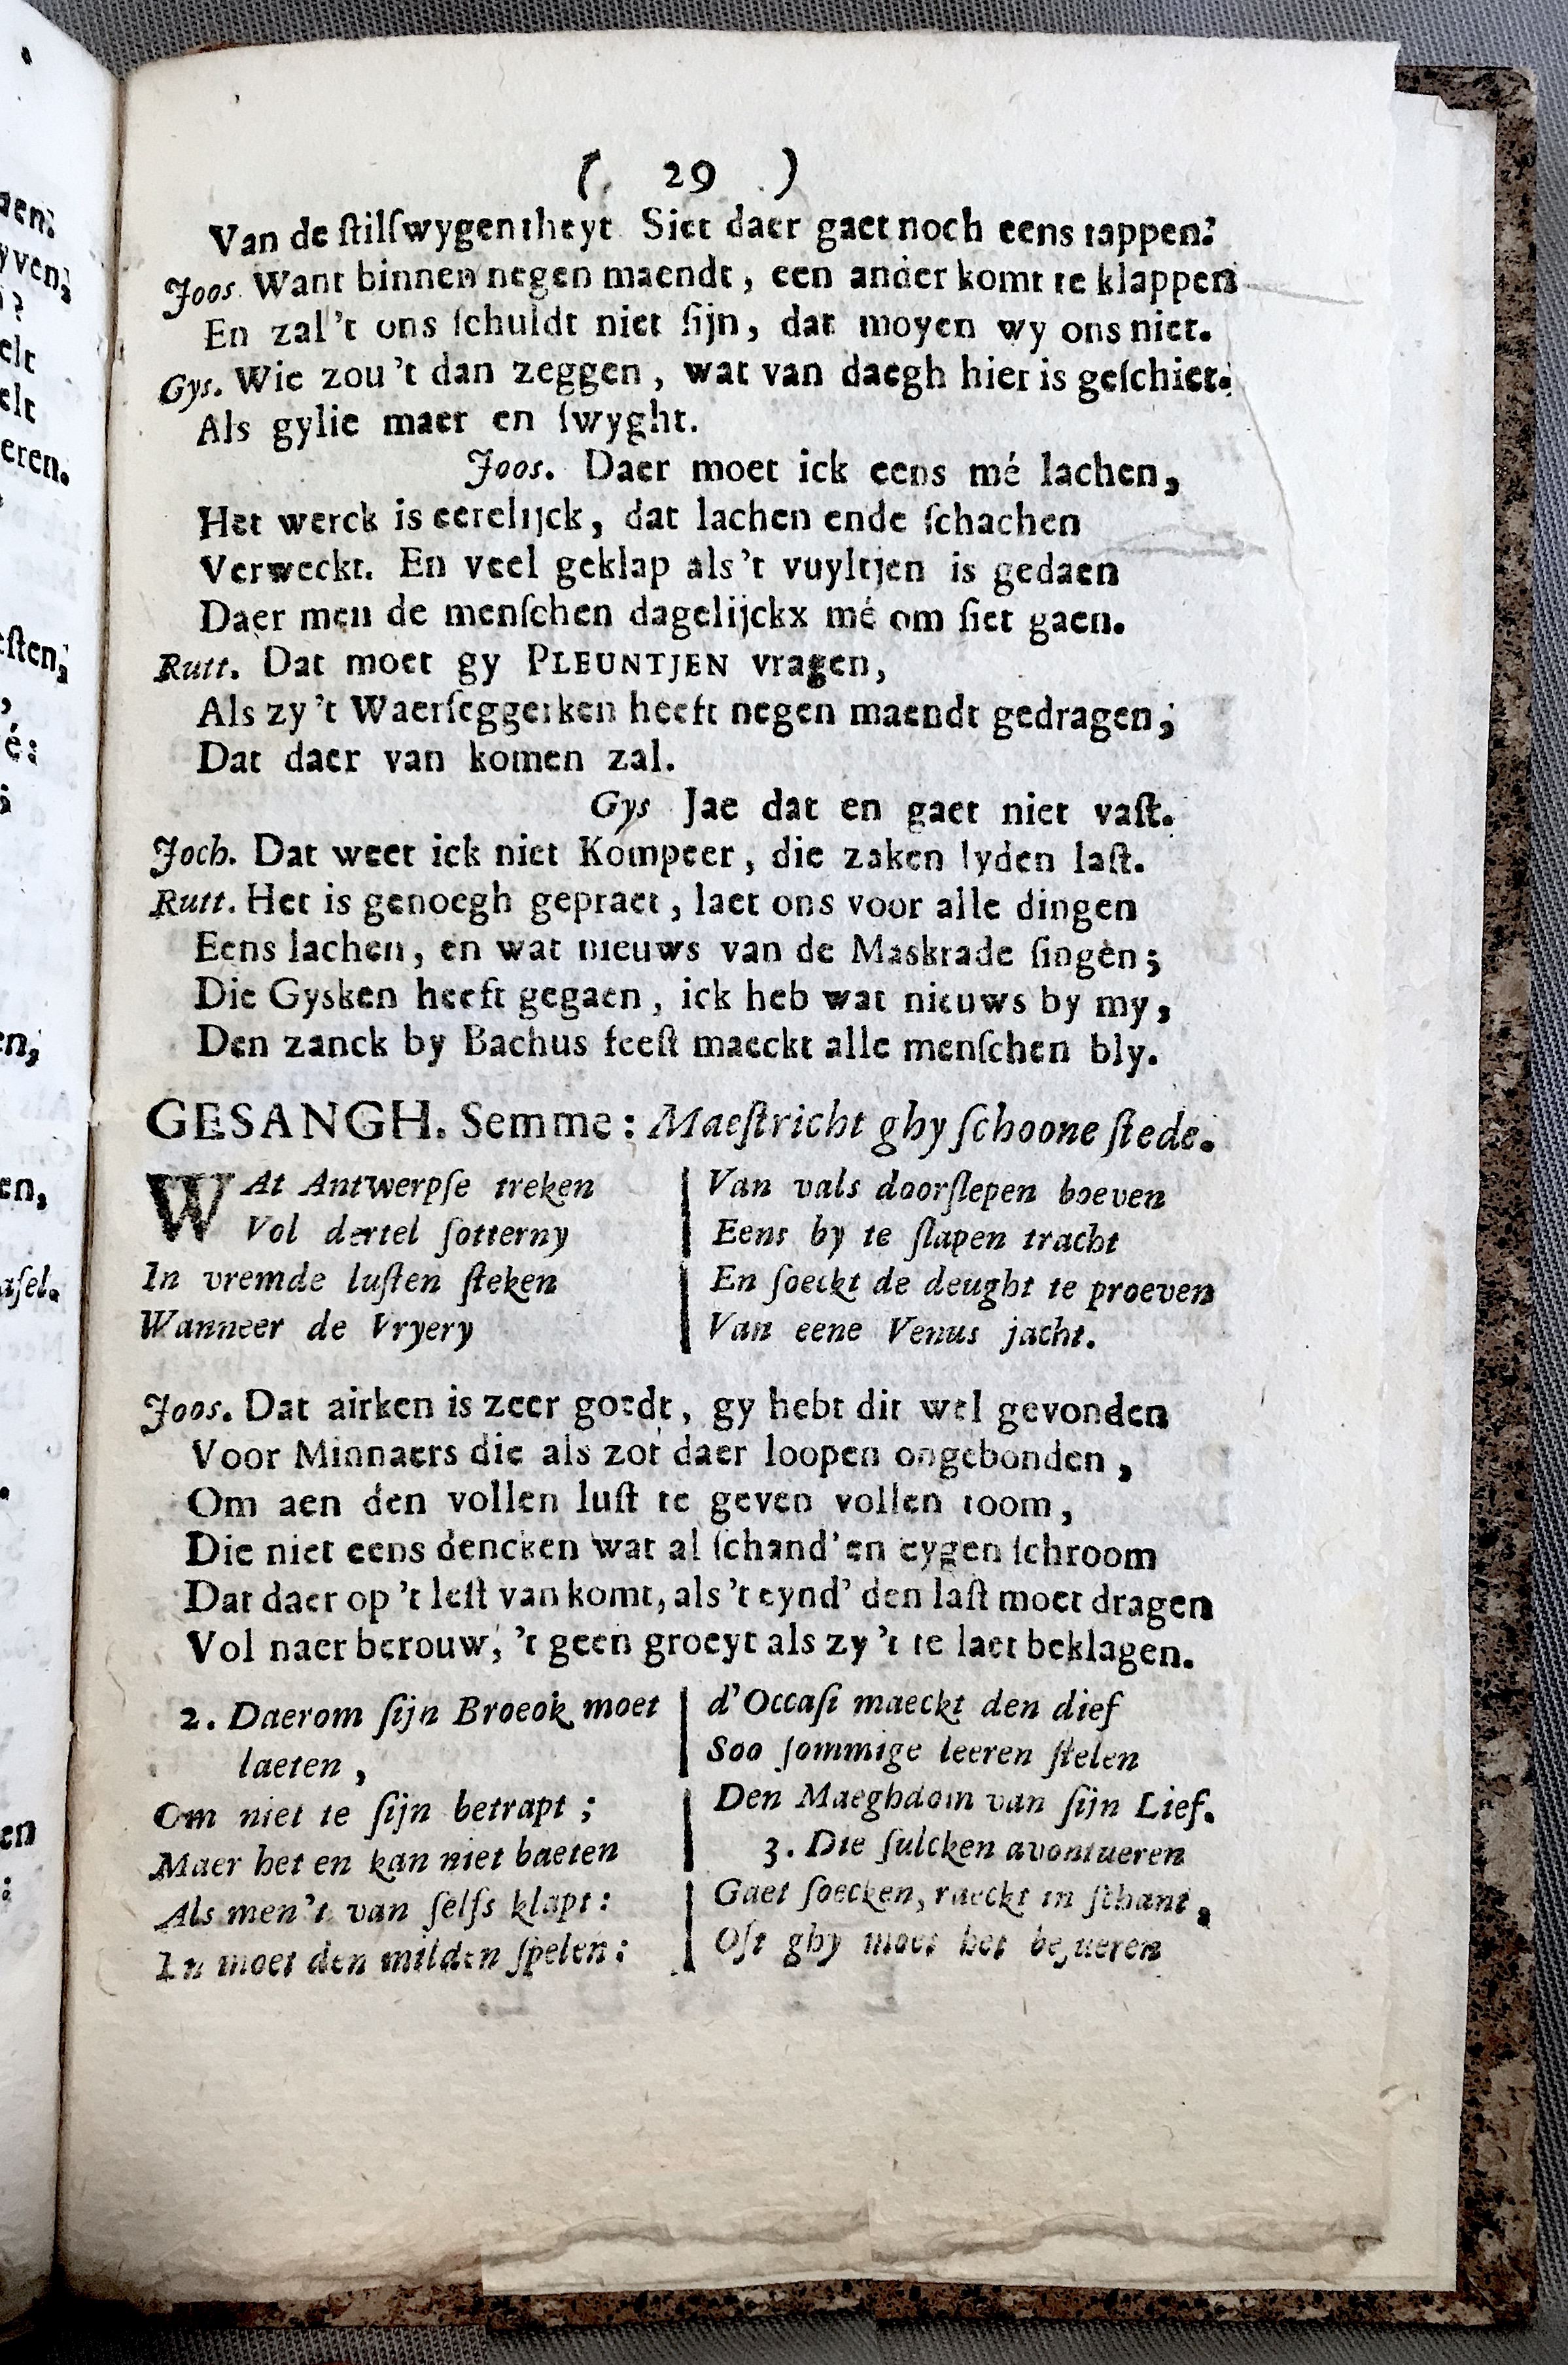 ( 29 )
Van de ſtilſwygentheyt Siet daer gaet noch eens tappen:
Joos. Want binnen negen maendt, een ander komt te klappen
En zal't ons ſchuldt niet ſijn, dat moyen wy ons niet.
Gys. Wie zou't dan zeggen, wat van daegh hier is geſchiet.
Als gylie maer en ſwyght.
Joos. Daer moet ick eens mé lachen,
Het werck is eerelijck, dat lachen ende ſchachen
Verweckt. En veel geklap als't vuyltjen is gedaen
Daer men de menſchen dagelijckx mé om ſiet gaen.
Rutt. Dat moet gy PLEUNTJEN vragen,
Als zy't Waerſeggerken heeft negen maendt gedragen,
Dat daer van komen zal.
Gys Jae dat en gaet niet vaſt.
Joch. Dat weet ick niet Kompeer, die zaken lyden laſt.
Rutt. Het is genoegh gepraet, laet ons voor alle dingen
Eens lachen, en wat nieuws van de Maskrade ſingen;
Die Gysken heeft gegaen, ick heb wat nieuws by my,
Den zanck by Bachus feeſt maeckt alle menſchen bly.
GESANGH. Semme: Maeſtricht ghy ſchoone ſtede.
WAt Antwerpſe treken
Vol dertel ſotterny
In vremde luſten ſteken
Wanneer de Vryery
Van vals doorſlepen boeven
Eens by te ſlapen tracht
En ſoeckt de deught te proeven
Van eene Venus jacht.
Joos. Dat airken is zeer goedt, gy hebt dit wel gevonden
Voor Minnaers die als zot daer loopen ongebonden,
Om aen den vollen luſt te geven vollen toom,
Die niet eens dencken wat al ſchand' en eygen ſchroom
Dat daer op 't leſt van komt, als 't eynd' den laſt moet dragen
Vol naer berouw, 't geen groeyt als zy 't te laet beklagen.
2. Daerom ſijn Broeok moet
laeten,
Om niet te ſijn betrapt;
Maer het en kan niet baeten
Als men't van ſelfs klapt:
In moet den milden ſpelen:
d'Occaſi maeckt den dief
Soo ſommige leeren ſtelen
Den Maeghdom van ſijn Lief.
3. Die ſulcken avontueren
Gaet ſoecken, raeckt in ſchant,
Oft ghy moet het bezueren